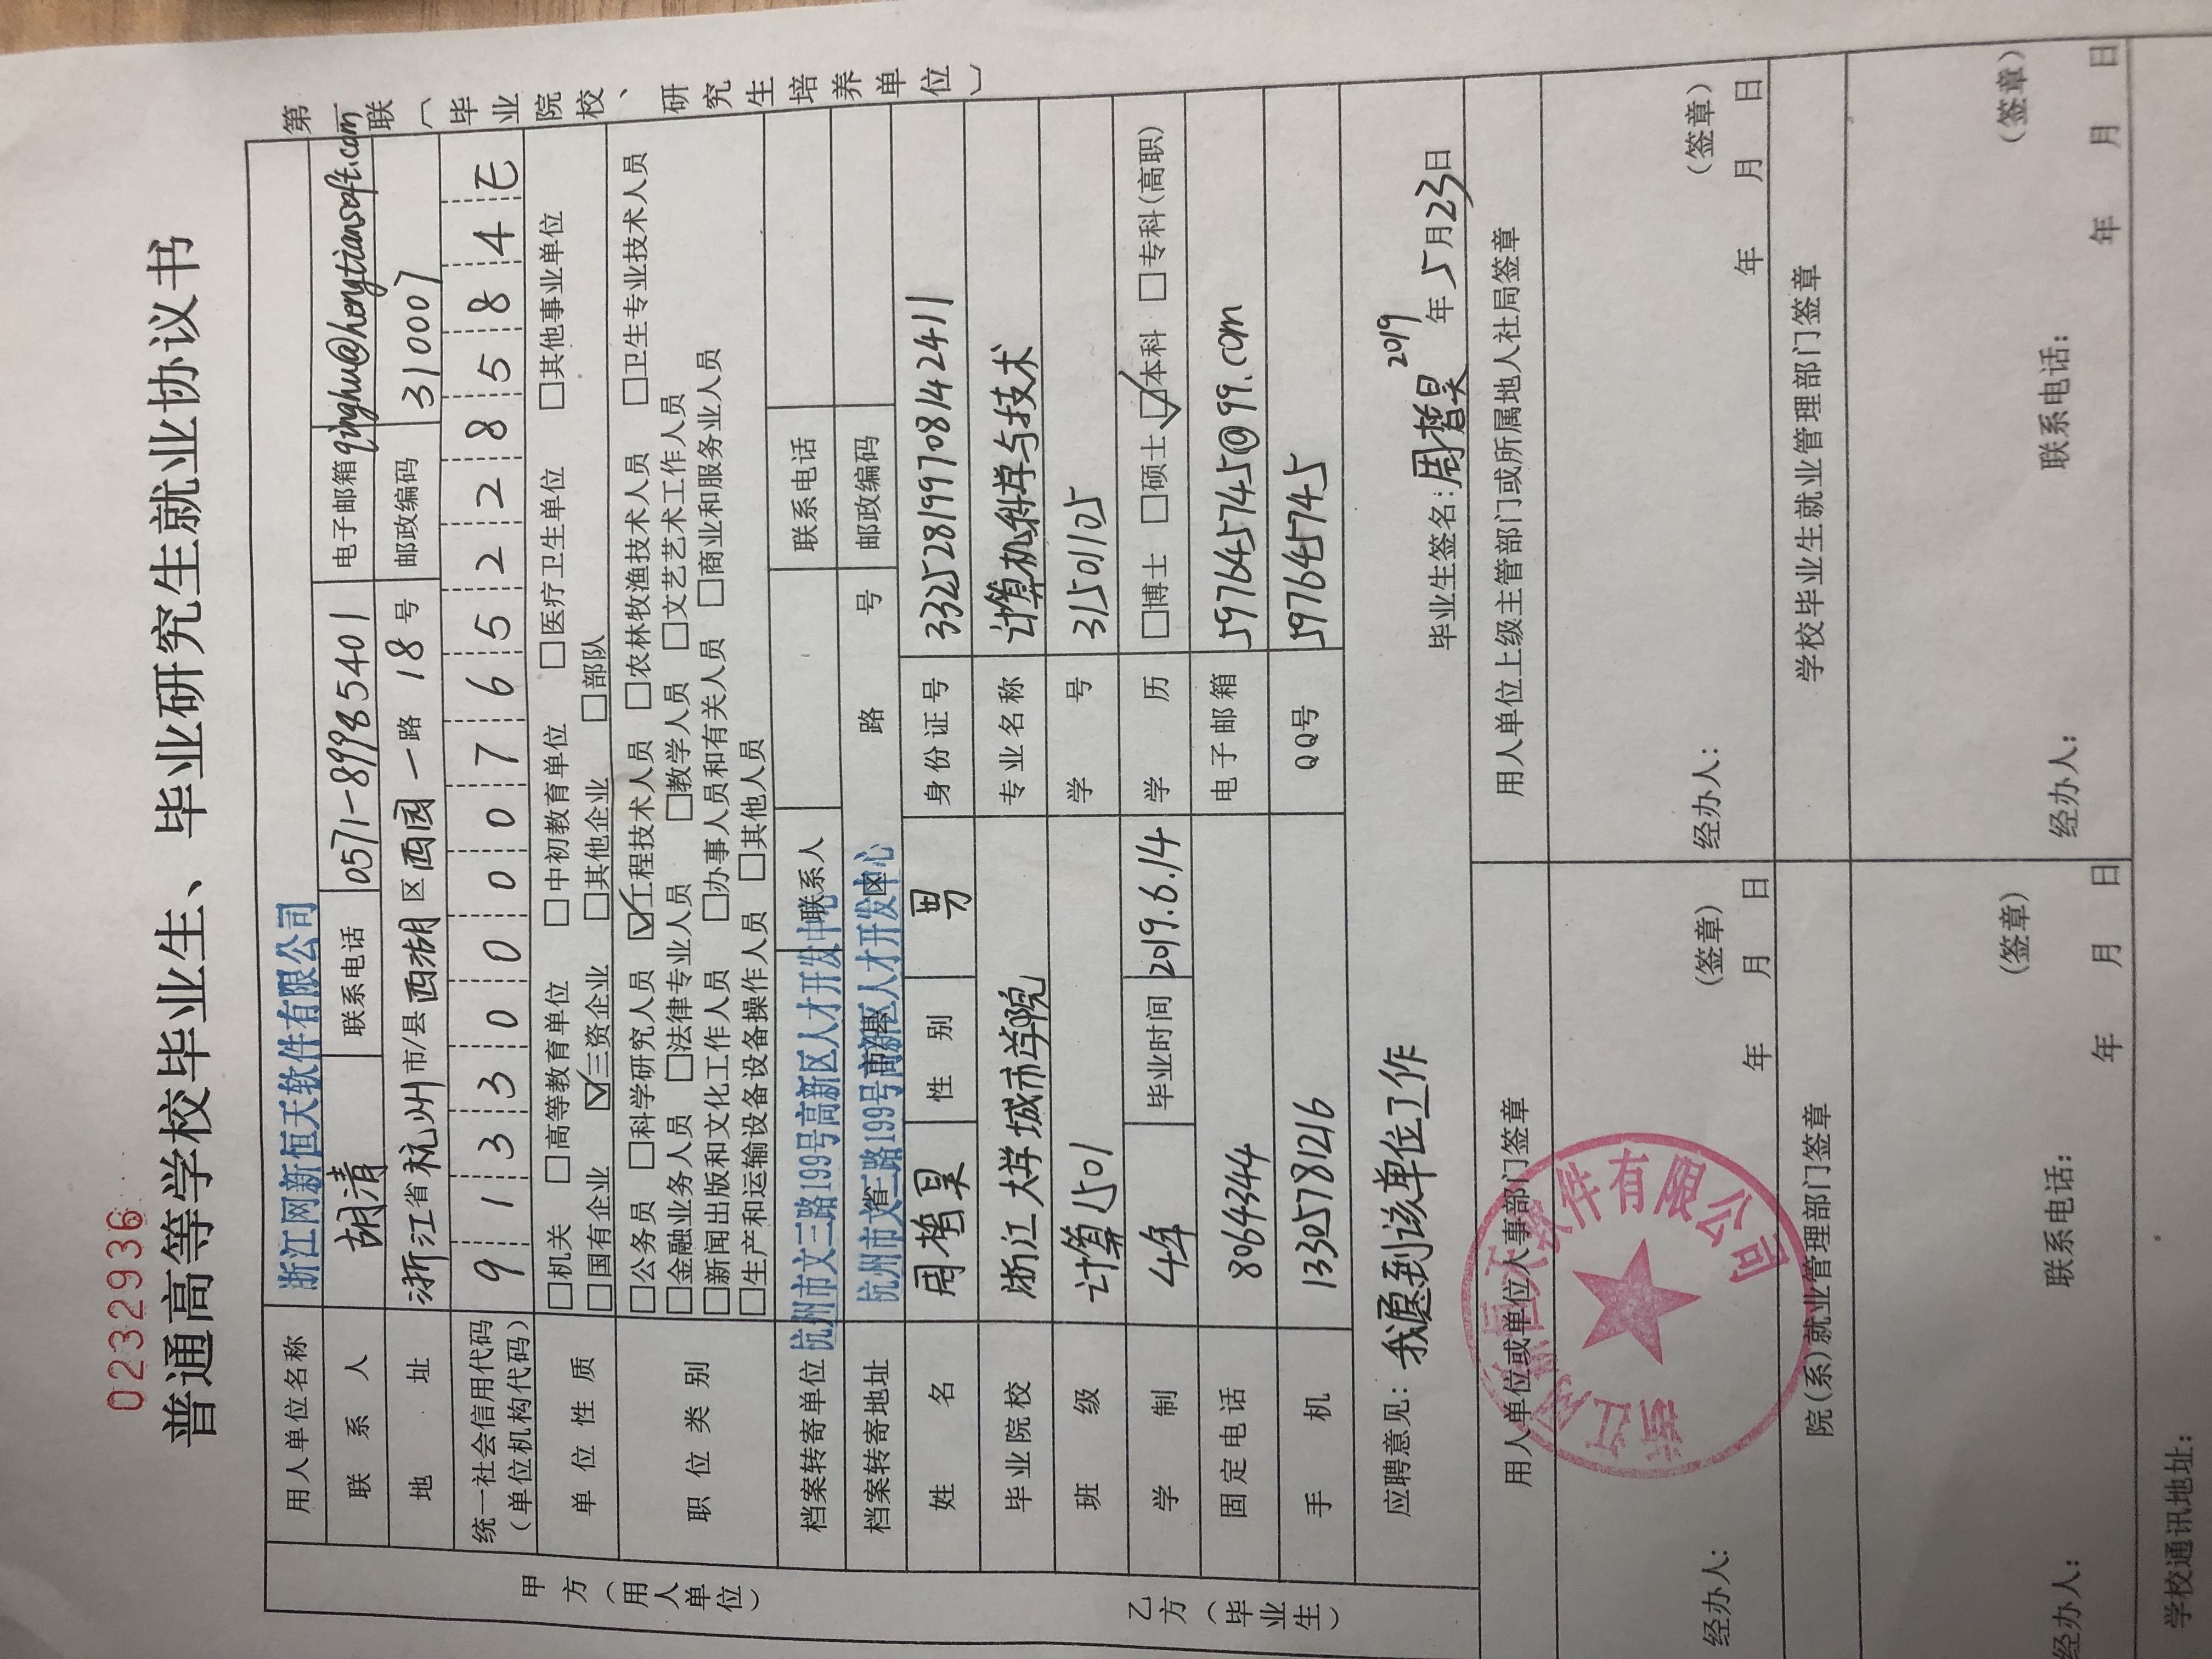 0232936
普通高等学校毕业生、毕业研究生就业协议书
第一联（毕业院校、研究生培养单位）
甲方（用人单位）
用人单位名称 浙江网新恒天软件有限公司
联系人 胡清 联系电话 0571-89985401 电子邮箱 qinghu@hengtiansoft.com
地址 浙江省杭州市/县西湖区西园一路 18号 邮政编码 310007
统一社会信用代码 9 1 3 3 0 0 0 0 7 6 5 2 2 8 5 8 4 E
（单位机构代码）
单位性质 □机关 □高等教育单位 □中初教育单位 □医疗卫生单位 □其他事业单位
□国有企业 ☑三资企业 □其他企业 □部队
职位类别 □公务员 □科学研究人员 ☑工程技术人员 □农林牧渔技术人员 □卫生专业技术人员
□金融业务人员 □法律专业人员 □教学人员 □文艺艺术工作人员
□新闻出版和文化工作人员 □办事人员和有关人员 □商业和服务业人员
□生产和运输设备设备操作人员 □其他人员
档案转寄单位 杭州市文三路199号高新区人才开发中心 联系人 联系电话
档案转寄地址 杭州市文三路199号高新区人才开发中心 省 市/县 区 路 号 邮政编码
乙方（毕业生）
姓名 周哲昊 性别 男 身份证号 332528199708142411
毕业院校 浙江大学城市学院 专业名称 计算机科学与技术
班级 计算1501 学号 31501105
学制 4年 毕业时间 2019.6.14 学历 □博士 □硕士 ☑本科 □专科(高职)
固定电话 8064344 电子邮箱 597645745@qq.com
手机 13305781216 QQ号 597645745
应聘意见: 我愿到该单位工作
毕业生签名: 周哲昊 2019年5月23日
用人单位或单位人事部门签章 用人单位上级主管部门或所属地人社局签章
浙江网新恒天软件有限公司
经办人: (签章) 经办人: (签章)
年 月 日 年 月 日
院(系)就业管理部门签章 学校毕业生就业管理部门签章
(签章) (签章)
经办人: 联系电话: 经办人: 联系电话:
年 月 日 年 月 日
学校通讯地址: